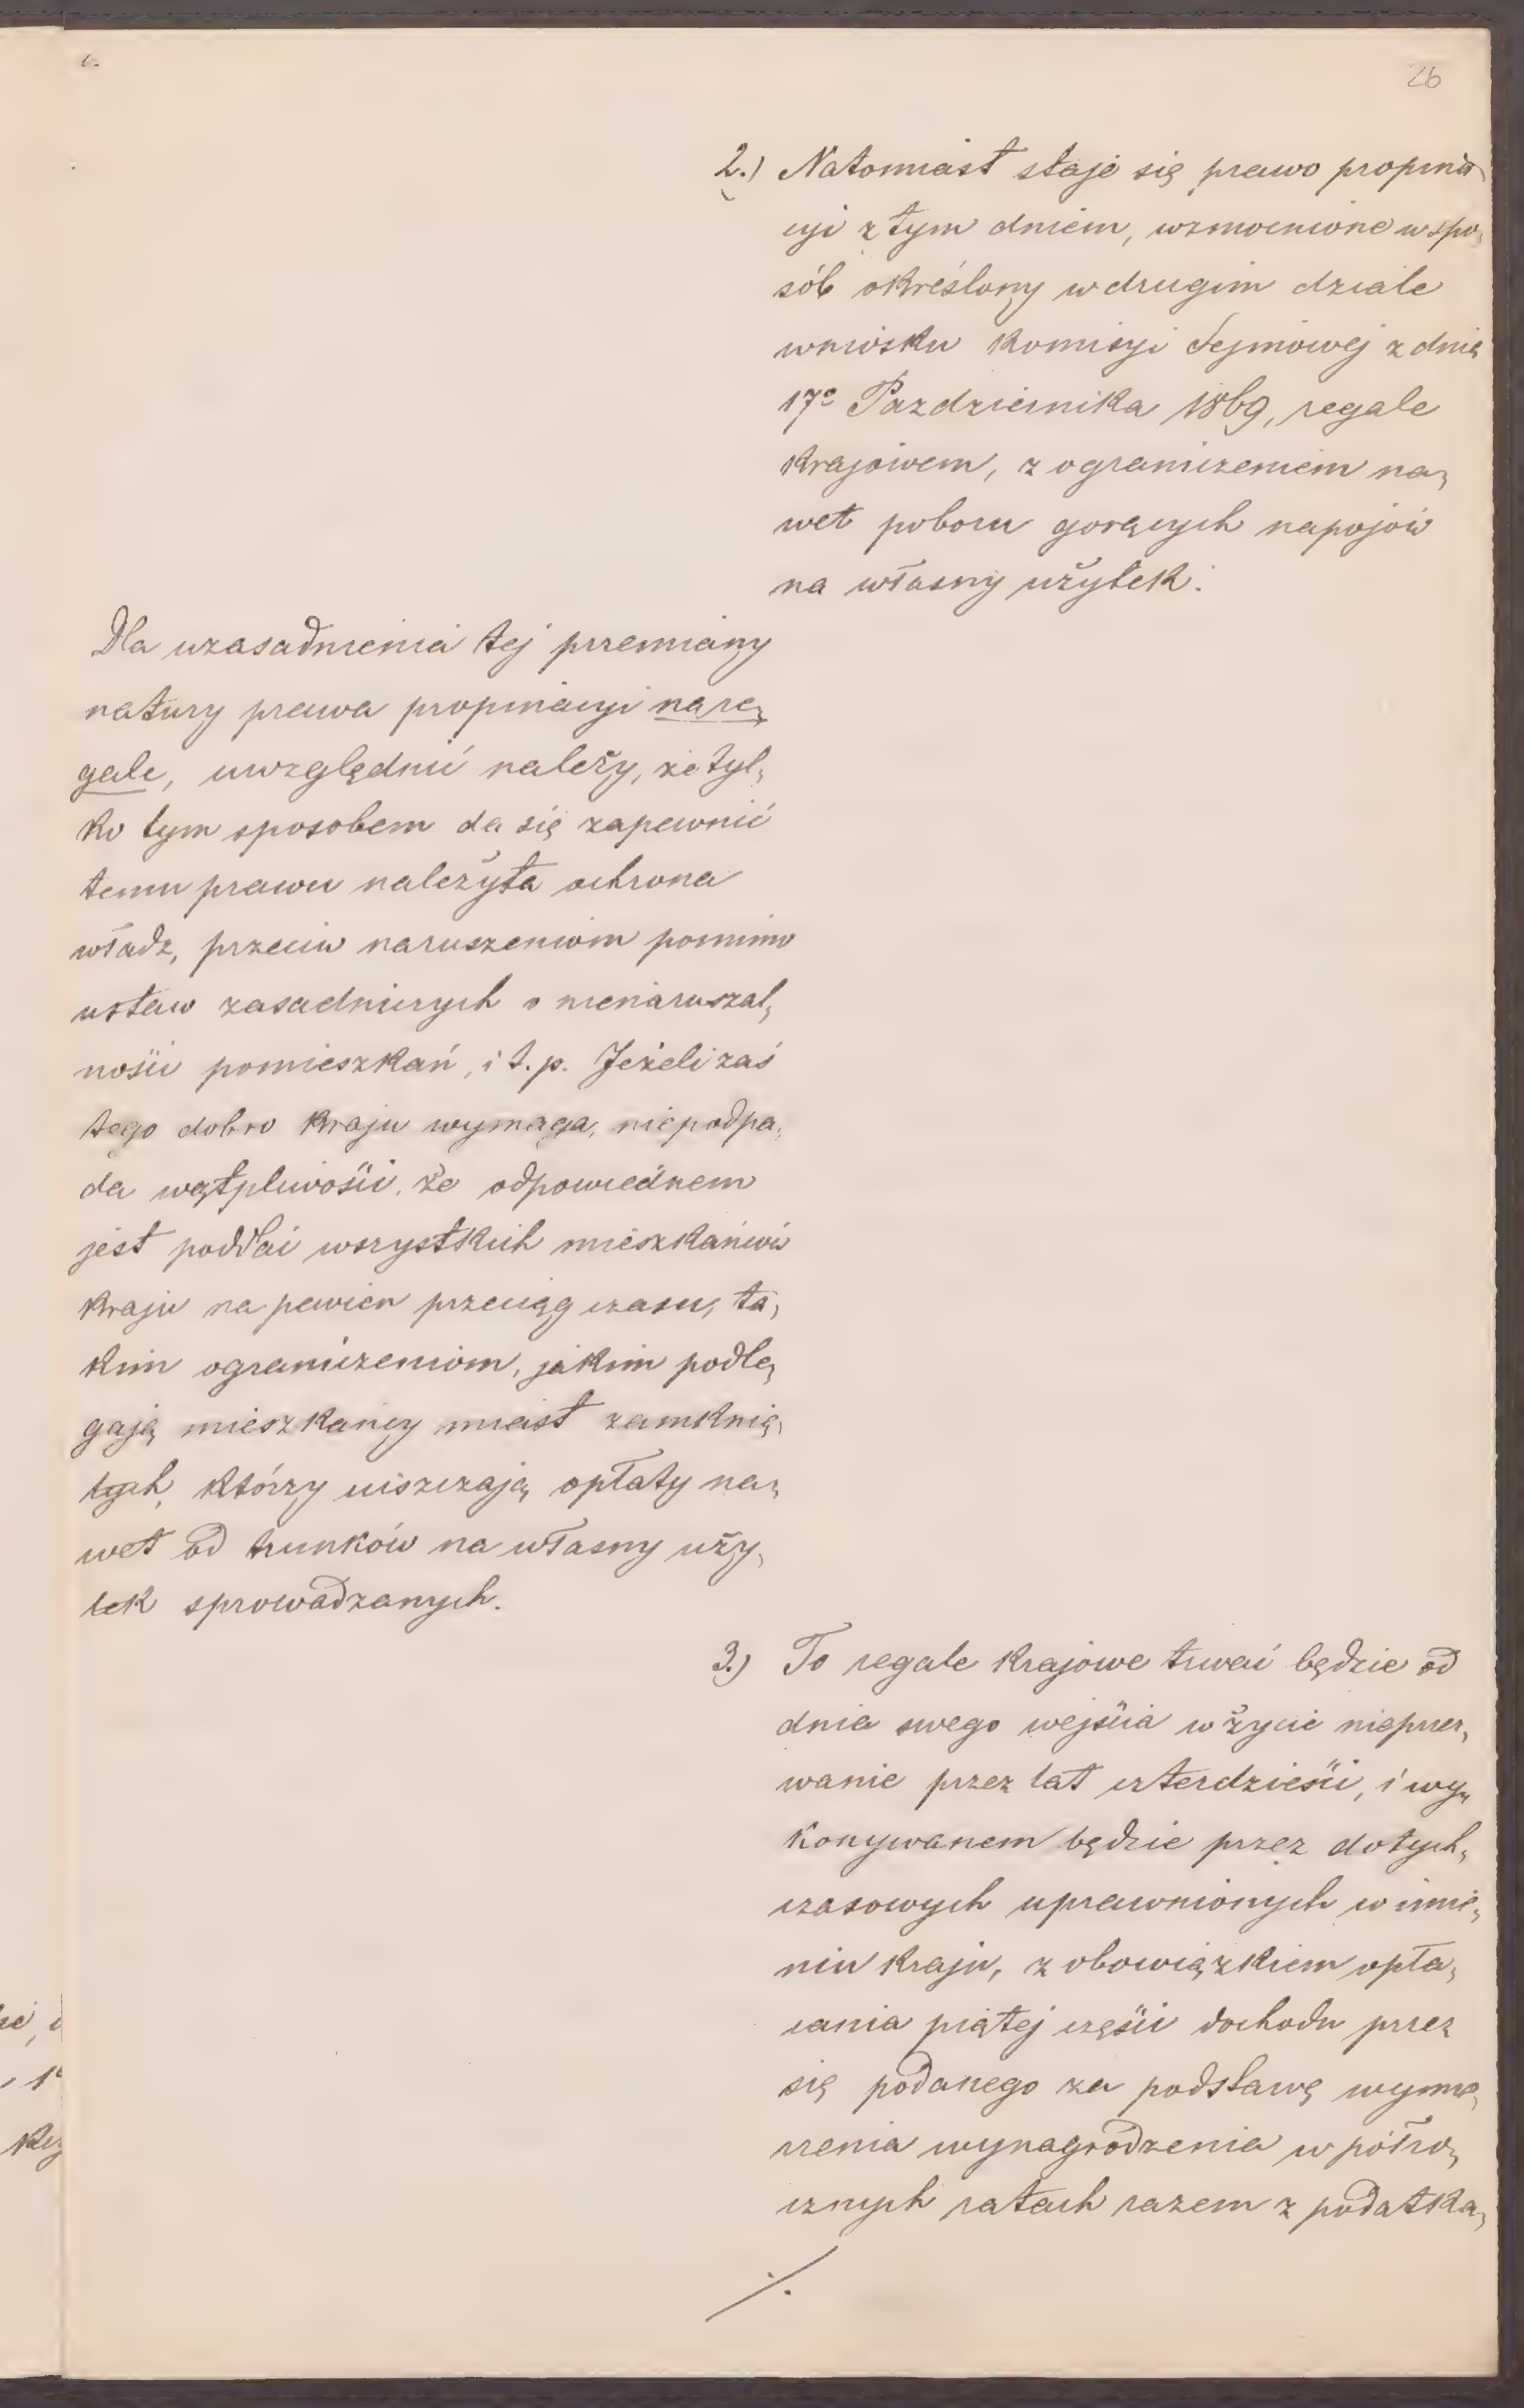 26
2.) Natomiast staje się prawo propina„
cyi z tym dniem, wzmocnione w spo„
sób określony w drugim dziale
wniosku Komisyi Sejmowej z dnia
17º Pazdziernika 1869, regale
Krajowem, z ograniczeniem na„
wet poboru gorących napojów
na własny użytek.
Dla uzasadnienia tej przemiany
natury prawa propinacyi na re„
gale, uwzględnić należy, że tyl„
ko tym sposobem da się zapewnić
temu prawu należyta ochrona
władz, przeciw naruszeniom pomimo
ustaw zasadniczych o nienaruszal„
ności pomieszkań, i t. p. Jeżeli zaś
tego dobro Kraju wymaga, niepodpa„
da wątpliwości, że odpowiednem
jest poddać wszystkich mieszkańców
Kraju na pewien przeciąg czasu, ta„
kim ograniczeniom, jakim podle„
gają mieszkańcy miast zamknię„
tych, którzy uiszczają opłaty na„
wet od trunków na własny uży„
tek sprowadzanych.
3.) To regale Krajowe trwać będzie od
dnia swego wejścia w życie nieprzer„
wanie przez lat czterdzieści, i wy„
konywanem będzie przez dotych„
czasowych uprawnionych w imie„
niu Kraju, z obowiązkiem opła„
cania piątej części dochodu przez
się podanego za podstawę wymie„
rzenia wynagrodzenia w półro„
cznych ratach razem z podatka„
./.